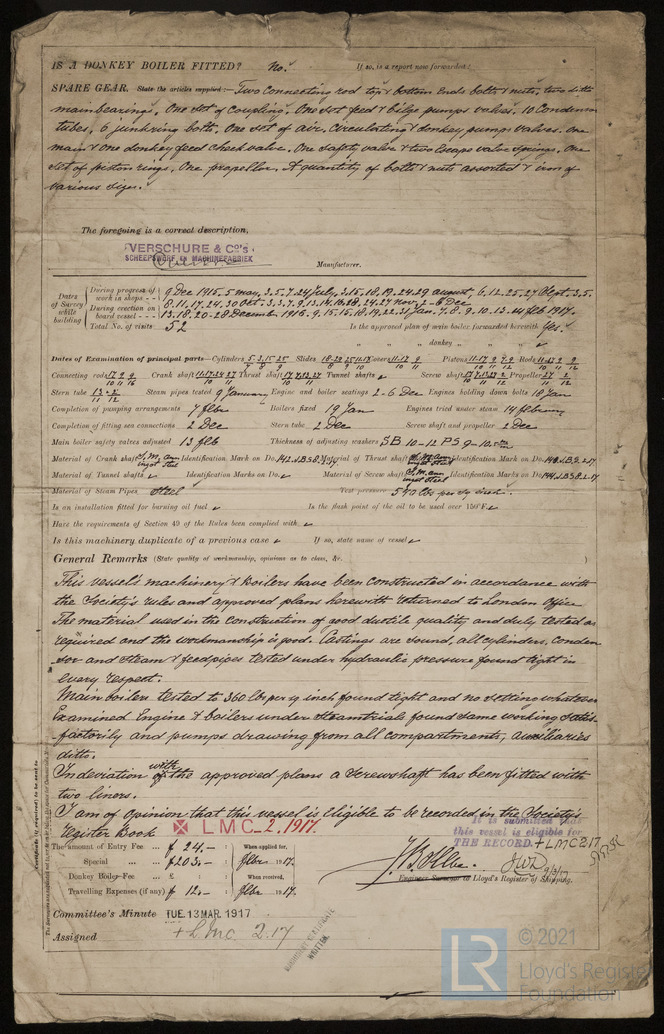 IS A DONKEY BOILER FITTED? No. If so, is a report now forwarded?
SPARE GEAR. State the articles supplied:— Two connecting rod top & bottom ends bolts & nuts, two ditto
main bearings. One set of coupling. One set feed & bilge pumps valves. 10 Condenser
tubes, 6 junkring bolts. One set of air, circulating & donkey pumps valves. One
main & one donkey feed check valve. One safety valve & two Escape valve springs. One
set of piston rings. One propeller. A quantity of bolts & nuts assorted & iron of
various sizes.
The foregoing is a correct description,
VERSCHURE & Co's
SCHEEPSWERF EN MACHINEFABRIEK
Manufacturer.
Dates of Survey while building
During progress of work in shops - - 9 Dec 1915. 5 may, 3. 5. 7. 24 July, 3. 15. 18. 19. 24. 29 august, 6. 12. 25. 27 Sept. 3. 5.
8. 11. 17. 24. 30 Oct. 3. 7. 9. 13. 14. 16. 24. 27 nov. 2 - 6 Dec
During erection on board vessel - - - 13. 18. 20 - 28 December 1916. 9. 15. 18. 19. 22. 31 Jan. 7. 8. 9. 10. 13 - 14 feb 1917.
Total No. of visits 52 Is the approved plan of main boiler forwarded herewith Yes.
" " " donkey " " "
Dates of Examination of principal parts—Cylinders Slides Covers Pistons Rods
Connecting rods Crank shaft Thrust shaft Tunnel shafts Screw shaft Propeller
Stern tube Steam pipes tested 9 January Engine and boiler seatings 2 - 6 Dec Engines holding down bolts 18 Jan
Completion of pumping arrangements 7 feb Boilers fixed 19 Jan Engines tried under steam 14 february
Completion of fitting sea connections 2 Dec Stern tube 2 Dec Screw shaft and propeller 2 Dec
Main boiler safety valves adjusted 13 feb Thickness of adjusting washers SB 10-12 PS 9-10.5 mm
Material of Crank shaft S. M. ann ingot Steel Identification Mark on Do. Material of Thrust shaft S. M. ann ingot Steel Identification Mark on Do.
Material of Tunnel shafts Identification Marks on Do. Material of Screw shaft S. M. ann ingot Steel Identification Marks on Do.
Material of Steam Pipes Steel Test pressure 540 lbs per sq inch.
Is an installation fitted for burning oil fuel Is the flash point of the oil to be used over 150°F.
Have the requirements of Section 49 of the Rules been complied with.
Is this machinery duplicate of a previous case If so, state name of vessel
General Remarks (State quality of workmanship, opinions as to class, &c.)
This vessel's machinery & boilers have been constructed in accordance with
the Society's rules and approved plans herewith returned to London Office
The material used in the construction of good ductile quality and duly tested as
required and the workmanship is good. Castings are sound, all cylinders, conden
sor and steam & feedpipes tested under hydraulic pressure found tight in
every respect.
Main boiler tested to 360 lbs per sq inch found tight and no setting whatever
Examined Engine & boilers under steamtrials found same working satis-
factorily and pumps drawing from all compartments, auxiliaries
ditto.
In deviation with the approved plans a screwshaft has been fitted with
two liners.
I am of Opinion that this vessel is Eligible to be recorded in the Society's
Register Book LMC_2.1917.
It is submitted that
this vessel is eligible for
THE RECORD. + LMC 2.17
The amount of Entry Fee ... £ 24.— When applied for,
Special ... £203.— febr. 1917.
Donkey Boiler Fee ... £ : : When received,
Travelling Expenses (if any) £ 12.— febr. 1917.
Engineer Surveyor to Lloyd's Register of Shipping.
Committee's Minute TUE. 13 MAR. 1917
Assigned + L.M.C. 2.17
MACHINERY CERTIFICATE
WRITTEN.
LR
© 2021
Lloyd's Register
Foundation